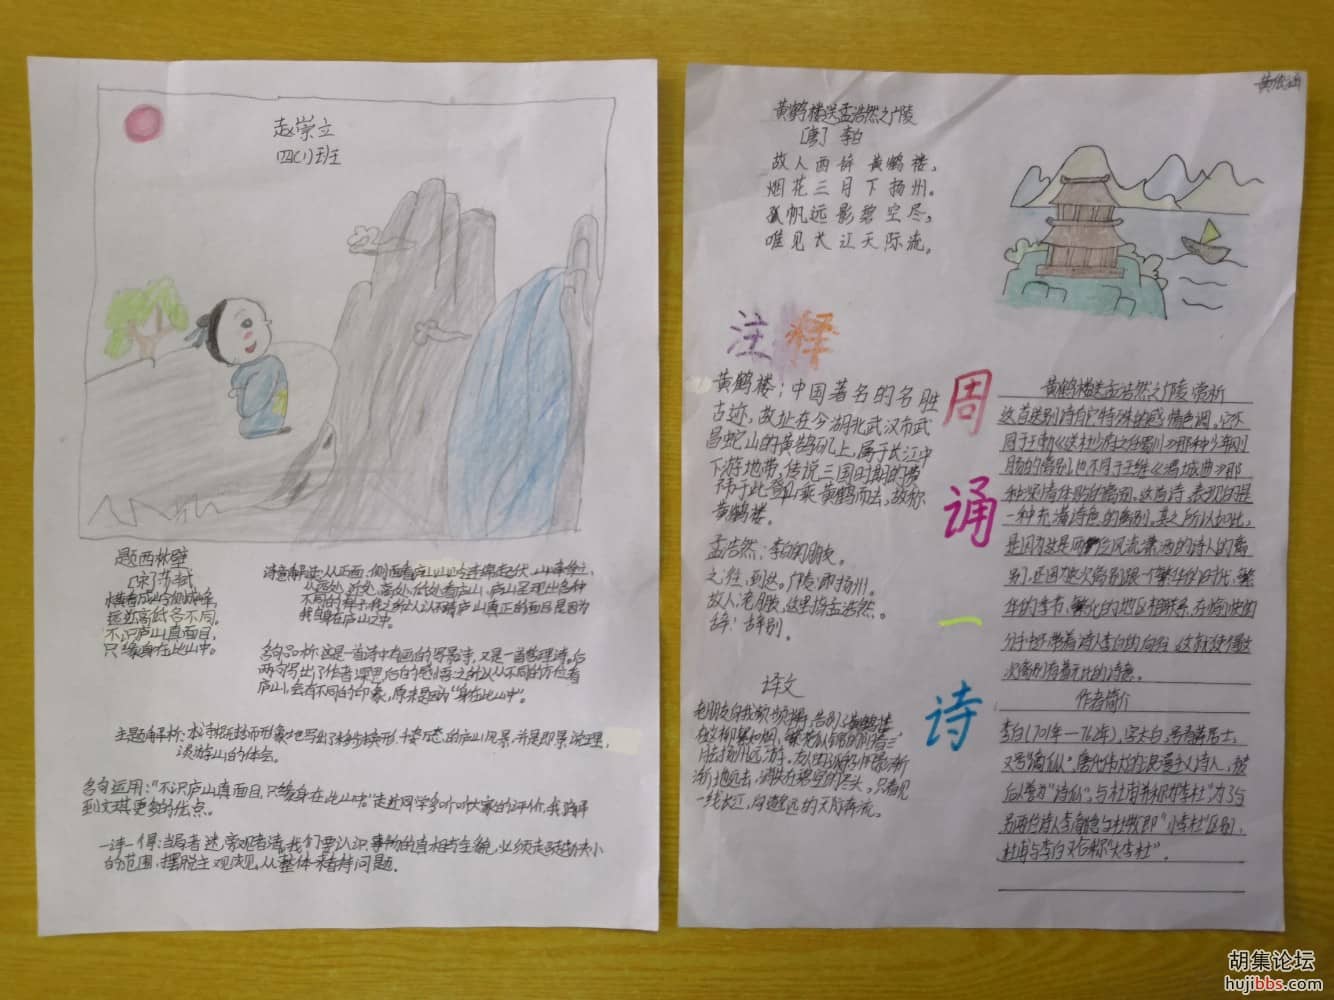 赵崇立
四(1)班
题西林壁
[宋]苏轼
横看成岭侧成峰,
远近高低各不同。
不识庐山真面目,
只缘身在此山中。
诗意解读:从正面、侧面看庐山山岭连绵起伏、山峰耸立,
从远处、近处、高处、低处看庐山,庐山呈现出各种
不同的样子。我之所以认不清庐山真正的面目,是因为
我自身在庐山之中。
名句品析:这是一首诗中有画的写景诗,又是一首哲理诗。后
两句写出了作者深思后的感悟:之所以从不同的方位看
庐山,会有不同的印象,原来是因为“身在此山中”。
主题解析:本诗
的庐山风景,并是即景说理,
谈游山的体会。
名句运用:“不识庐山真面目,只缘身在此山中”走进同学多听听大家的评价,我
到文琪更多的优点。
一诗一得:当局者迷,旁观者清,我们要认识事物的真相与全貌,必须走狭小
的范围,摆脱主观成见,从整体来看待问题。
黄鹤楼送孟浩然之广陵
[唐] 李白
故人西辞黄鹤楼,
烟花三月下扬州。
孤帆远影碧空尽,
唯见长江天际流。
注释
黄鹤楼:中国著名的名胜
古迹,故址在今湖北武汉市武
昌蛇山的黄鹄矶上,属于长江中
下游地带,传说三国时期的费
祎于此登山乘黄鹤而去,故称
黄鹤楼。
孟浩然:李白的朋友。
之:往,到达。广陵:即扬州。
故人:老朋友,这里指孟浩然。
辞:辞别。
译文
老朋友向我频频挥手,告别了黄鹤楼
在这柳絮如烟、繁花似锦的阳春三
月去扬州远游。友人的孤船帆影渐
渐地远去,消失在碧空的尽头,只看见
一线长江,向邈远的天际奔流。
周
诵
一
诗
黄鹤楼送孟浩然之广陵 赏析
这首送别诗有它特殊的感情色调。它不
同于王勃《送杜少府之任蜀川》那种少年刚
肠的离别,也不同于王维《渭城曲》那
种深情体贴的离别。这首诗,表现的是
一种充满诗意的离别。其之所以如此,
是因为这是两位风流潇洒的诗人的离
别,还因为这次离别跟一个繁华的时代、繁
华的季节、繁华的地区相联系,在愉快的
分手中还带着诗人李白的向往,这就使得这
次离别有着无比的诗意。
作者简介
李白(701年—762年),字太白,号青莲居士,
又号“谪仙人”,唐代伟大的浪漫主义诗人,被
后人誉为“诗仙”,与杜甫并称为“李杜”,为了与
另两位诗人李商隐与杜牧即“小李杜”区别,
杜甫与李白又合称“大李杜”。
胡集论坛
hujibbs.com